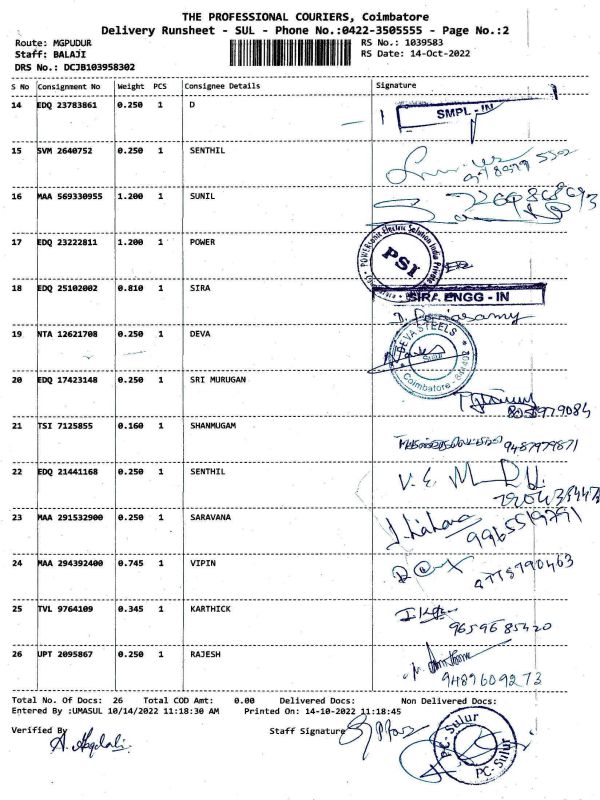 THE PROFESSIONAL COURIERS, Coimbatore
Delivery Runsheet - SUL - Phone No.:0422-3505555 - Page No.:2
Route: MGPUDUR
RS No.: 1039583
Staff: BALAJI
RS Date: 14-Oct-2022
DRS No.: DCJB103958302
S No Consignment No Weight PCS Consignee Details Signature
14 EDQ 23783861 0.250 1 D
SMPL - IN
15 SVM 2640752 0.250 1 SENTHIL
16 MAA 569330955 1.200 1 SUNIL
17 EDQ 23222811 1.200 1 POWER
PSI
18 EDQ 25102002 0.810 1 SIRA
SIRA ENGG - IN
19 NTA 12621708 0.250 1 DEVA
DEVA STEELS
Sulur
Coimbatore
20 EDQ 17423148 0.250 1 SRI MURUGAN
21 TSI 7125855 0.160 1 SHANMUGAM
9487979871
22 EDQ 21441168 0.250 1 SENTHIL
23 MAA 291532900 0.250 1 SARAVANA
24 MAA 294392400 0.745 1 VIPIN
25 TVL 9764109 0.345 1 KARTHICK
9659685420
26 UPT 2095867 0.250 1 RAJESH
9489609273
Total No. Of Docs: 26 Total COD Amt: 0.00 Delivered Docs: Non Delivered Docs:
Entered By :UMASUL 10/14/2022 11:18:30 AM Printed On: 14-10-2022 11:18:45
Verified By Staff Signature
PC-Sulur
PC-Sulur